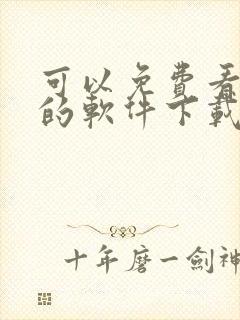 可以免費看
的軟件下載
十年磨一劍神